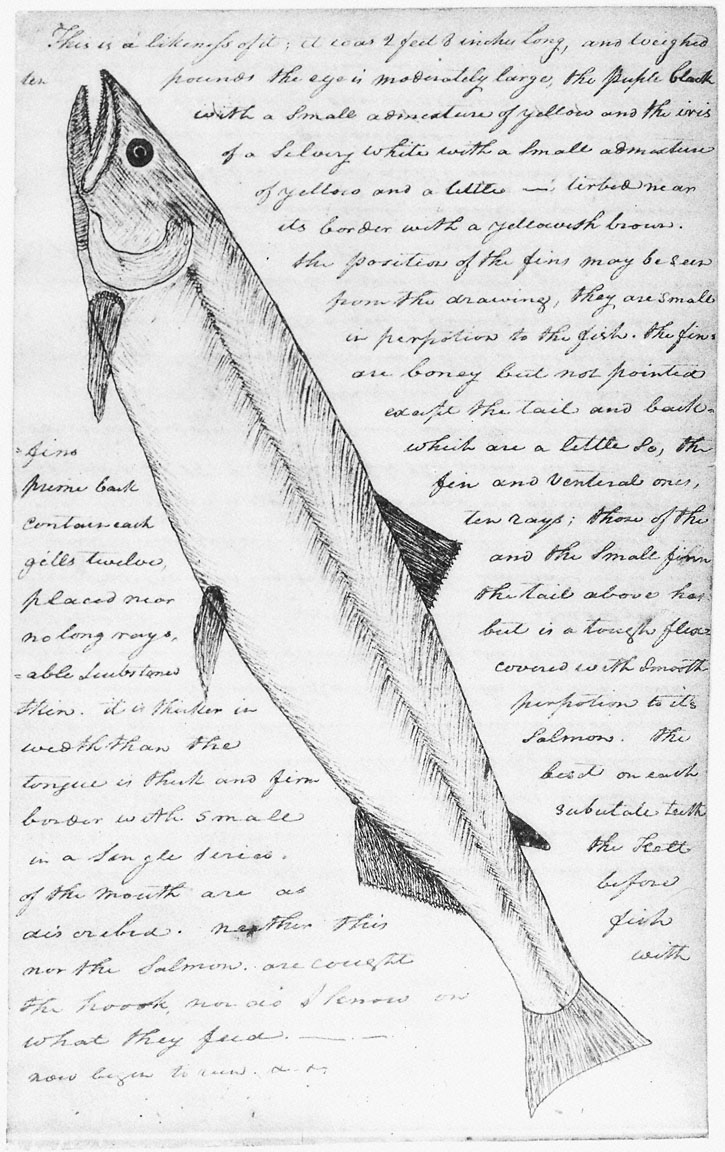 This is a likeness of it; it was 2 feet 8 inches long, and weighed
ten pounds the eye is moderately large, the puple black
with a small admixture of yellow and the iris
of a silvery white with a small admixture
of yellow and a little — tirbed near
its border with a yellowish brown.
the position of the fins may be seen
from the drawing, they are small
in perpotion to the fish. the fins
are boney but not pointed
except the tail and back=
=fins which are a little so, the
prime back fin and Venteral ones,
contain each ten rays; those of the
gills twelve, and the small finn
placed near the tail above has
no long rays, but is a tough flex=
=able substance covered with smooth
skin. it is thicker in perpotion to its
width than the salmon. the
tongue is thick and firm beset on each
border with small subulate teeth
in a single series. the Teeth
of the mouth are as before
discribed. neither this fish
nor the salmon are caught with
the hook, nor do I know on
what they feed. — —
now begin to run. &. &.